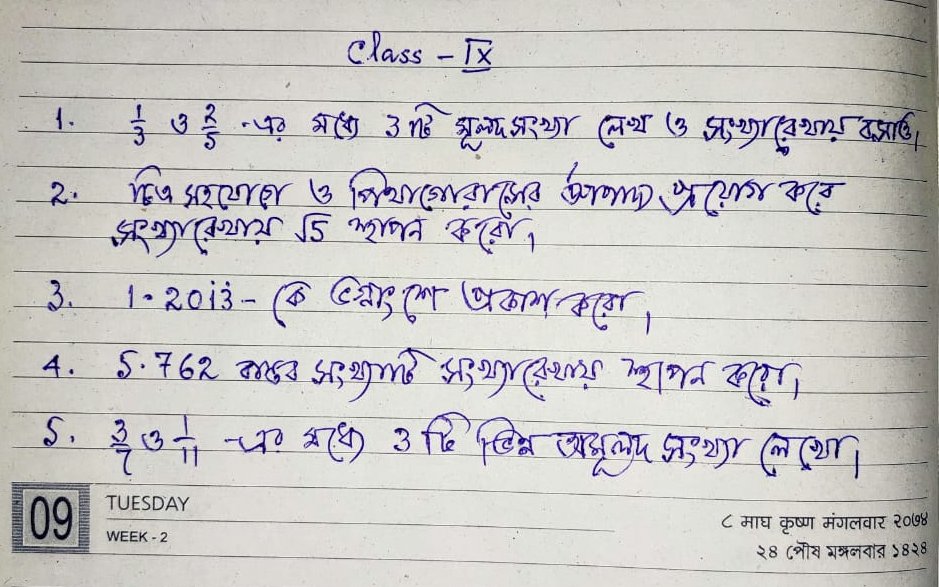 Class - IX
1. 1/3 ও 2/5 -এর মধ্যে 3 টি মূলদ সংখ্যা লেখ ও সংখ্যারেখায় বসাও।
2. চিত্র সহযোগে ও পিথাগোরাসের উপপাদ্য প্রয়োগ করে
সংখ্যারেখায় √5 স্থাপন করো।
3. 1.201̇3̇ - কে ভগ্নাংশে প্রকাশ করো।
4. 5.762 বাস্তব সংখ্যাটি সংখ্যারেখায় স্থাপন করো।
5. 3/7 ও 1/11 -এর মধ্যে 3 টি ভিন্ন অমূলদ সংখ্যা লেখো।
09 TUESDAY
WEEK - 2
८ माघ कृष्ण मंगलवार २०७४
২৪ পৌষ মঙ্গলবার ১৪২৪